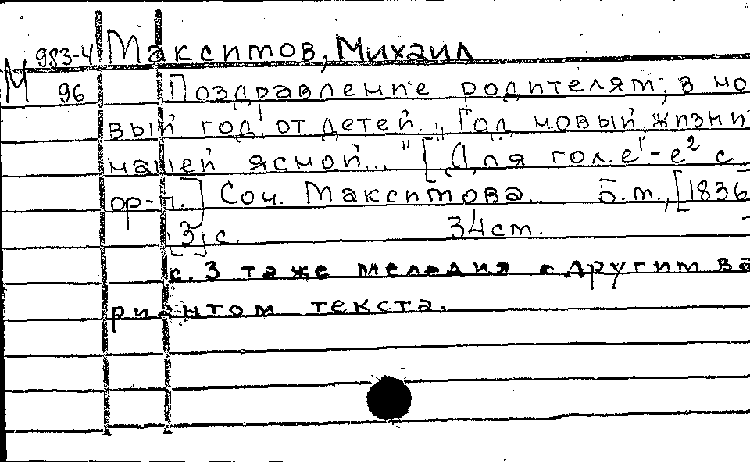 М 983-4 Максимов, Михаил
96 Поздравление родителям, в но
вый год от детей. „Год новый жизни
нашей ясной..." [Для гол. e¹-e² с
ор-п.] Соч. Максимова. Б.м., [1836
[3] с. 34 см.
с. 3 та же мелодия с другим ва
риантом текста.